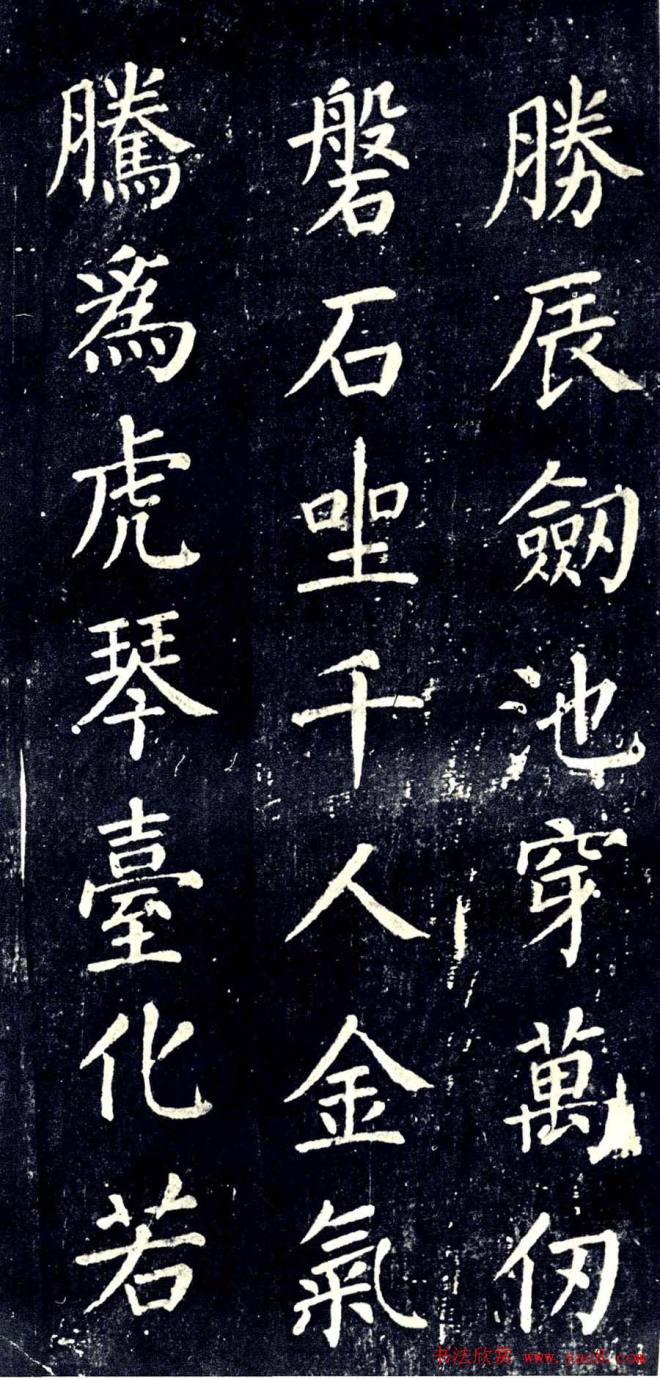 勝辰劒池穿萬仞
磐石坐千人金氣
騰爲虎琴臺化若
书法欣赏 www.yac8.com